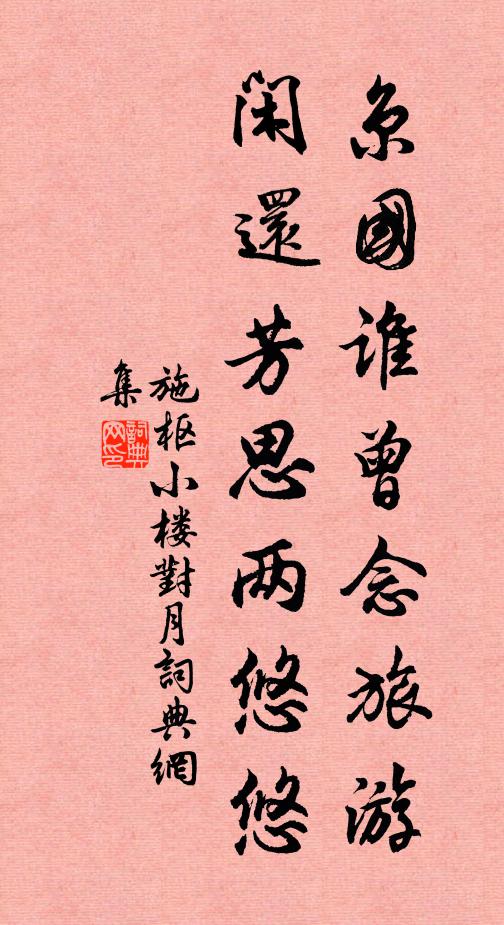 京國誰曾念旅游
閑還芳思两悠悠
施枢小楼對月詞典網
集
詞典网印